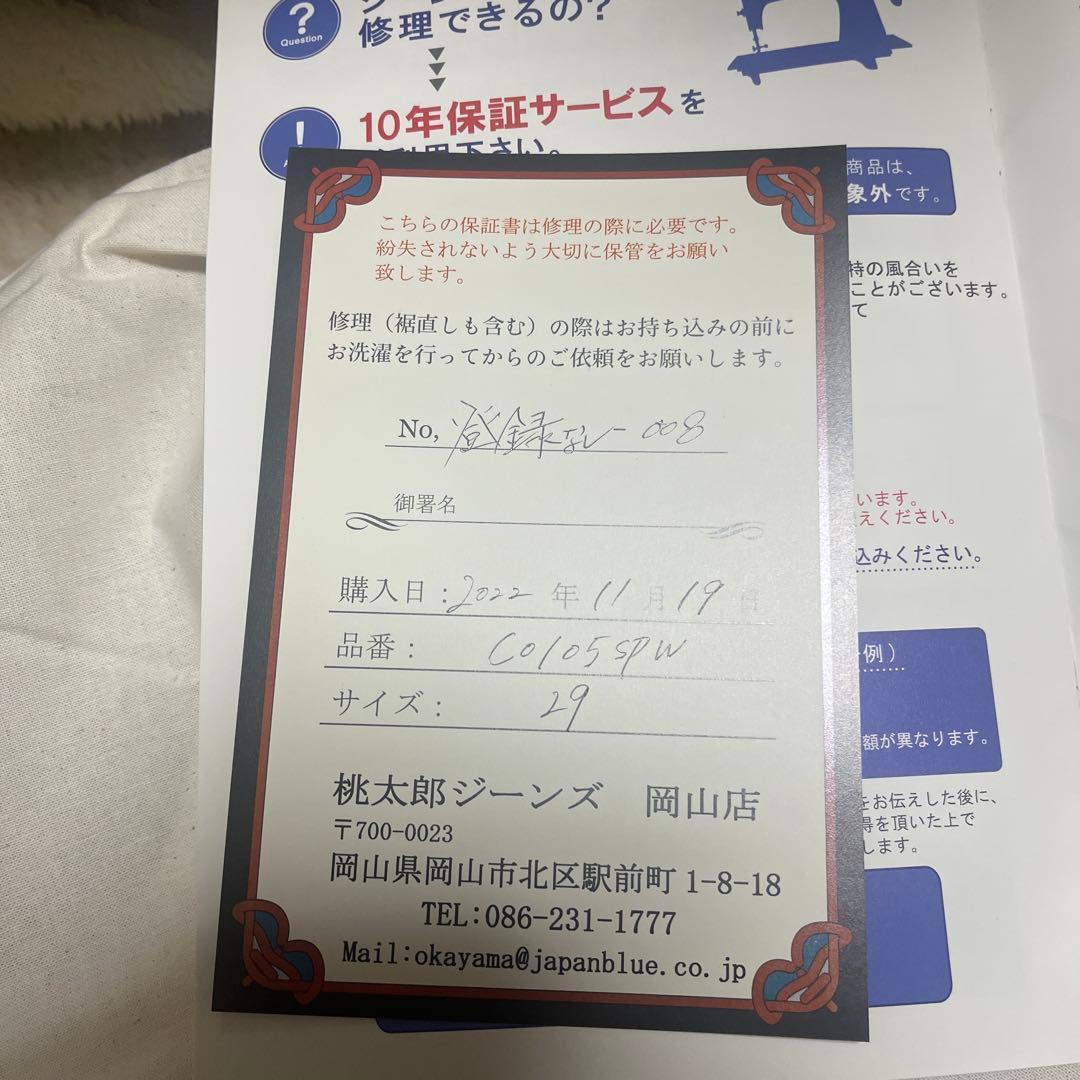 Question
修理できるの?
10年保証サービスを
商品は、
象外です。
こちらの保証書は修理の際に必要です。
紛失されないよう大切に保管をお願い
致します。
特の風合いを
ことがございます。
て
修理（裾直しも含む）の際はお持ち込みの前に
お洗濯を行ってからのご依頼をお願いします。
No, 登録なし-008
御署名
います。
えください。
込みください。
購入日：2022年11月19日
品番： C0105SPW
サイズ： 29
例）
額が異なります。
桃太郎ジーンズ 岡山店
〒700-0023
岡山県岡山市北区駅前町1-8-18
TEL:086-231-1777
Mail:okayama@japanblue.co.jp
をお伝えした後に、
得を頂いた上で
します。